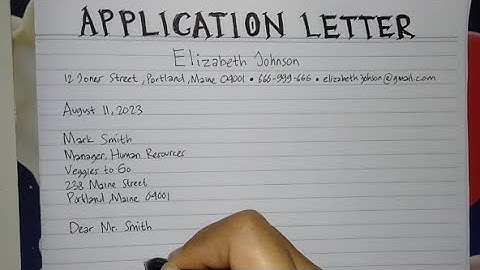 APPLICATION LETTER
Elizabeth Johnson
12 Jones Street, Portland, Maine 04001 • 666-999-666 • elizabethjohson@gmail.com
August 11, 2023
Mark Smith
Manager, Human Resources
Veggies to Go
238 Maine Street
Portland, Maine 04001
Dear Mr. Smith